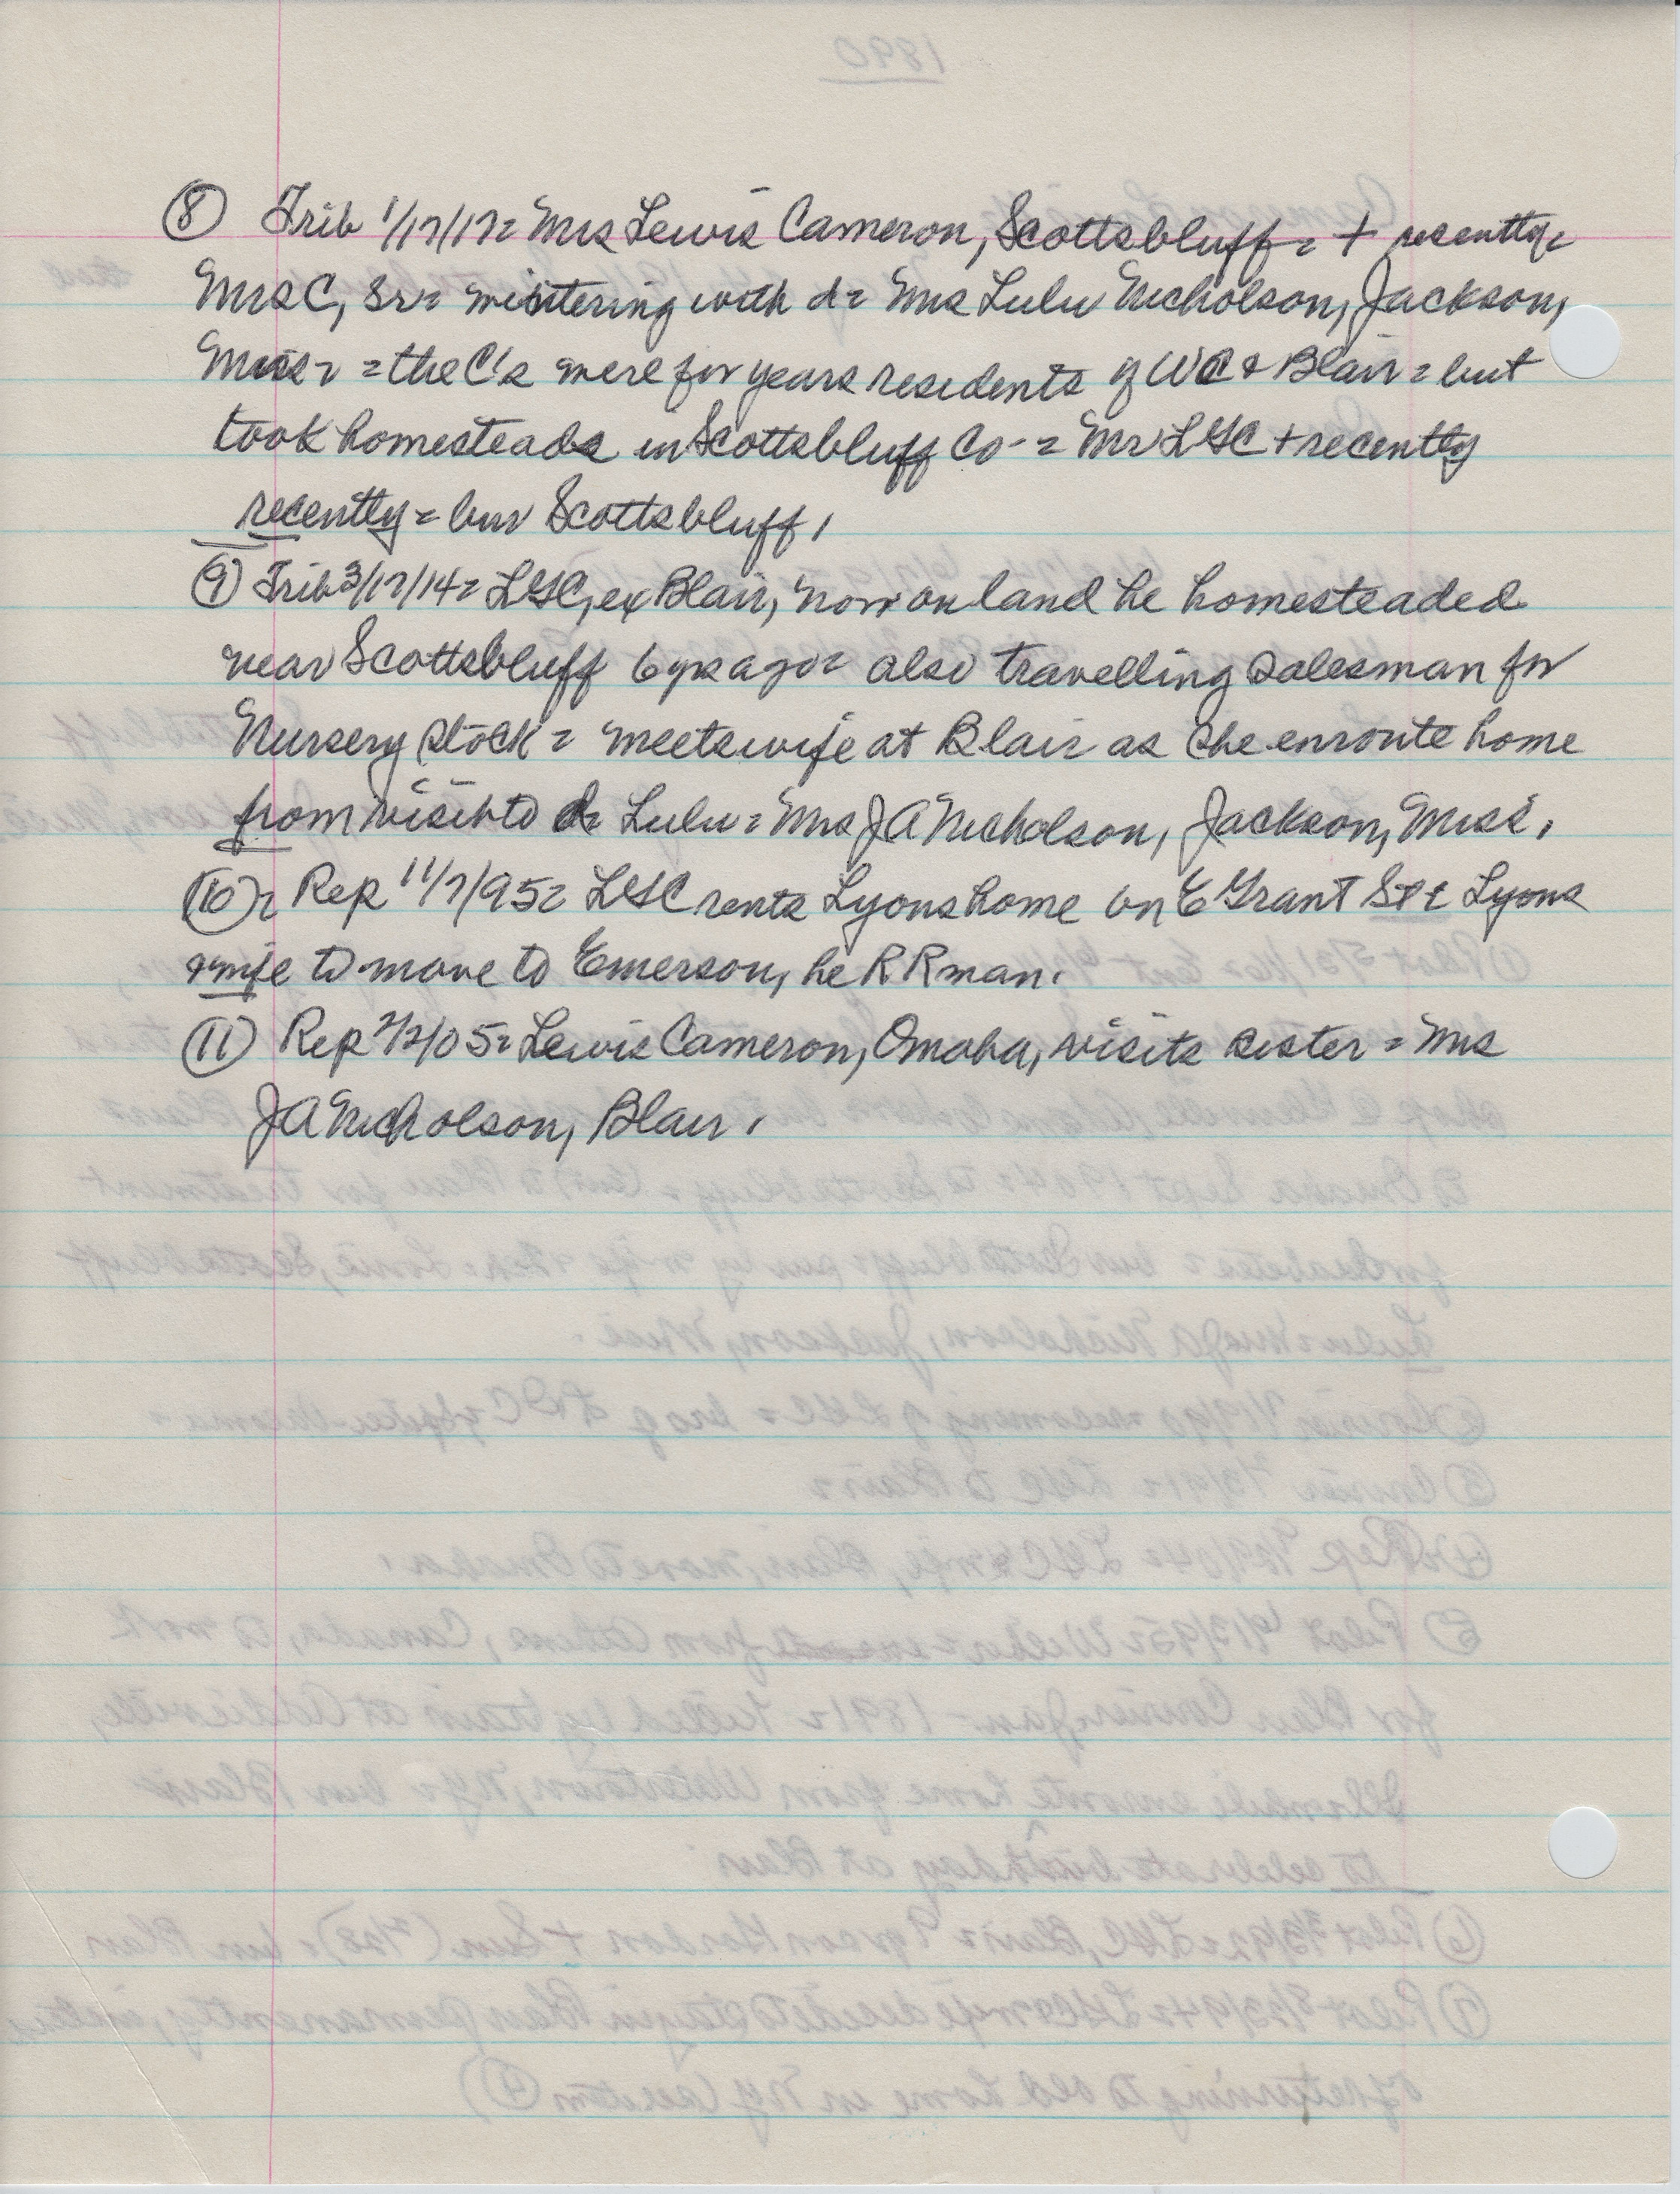 ⑧ Trib 1/17/17= Mrs Lewis Cameron, Scottsbluff = + recently=
Mrs C, Sr= wintering with d= Mrs Lulu Nicholson, Jackson,
Miss= = the C's were for years residents of WC & Blair = but
took homesteads in Scottsbluff Co- = Mr LHC + recently
recently = bur Scottsbluff,
⑨ Trib 3/17/14= LHC, ex Blair, now on land he homesteaded
near Scottsbluff 6 yrs ago= also travelling salesman for
Nursery stock = meets wife at Blair as she enroute home
from visit to d= Lulu = Mrs JA Nicholson, Jackson, Miss.
⑩= Rep 11/7/95= LHC rents Lyons home on E Grant St = Lyons
& wife to move to Emerson, he RR man.
⑪ Rep 2/05= Lewis Cameron, Omaha, visits sister = Mrs
JA Nicholson, Blair.